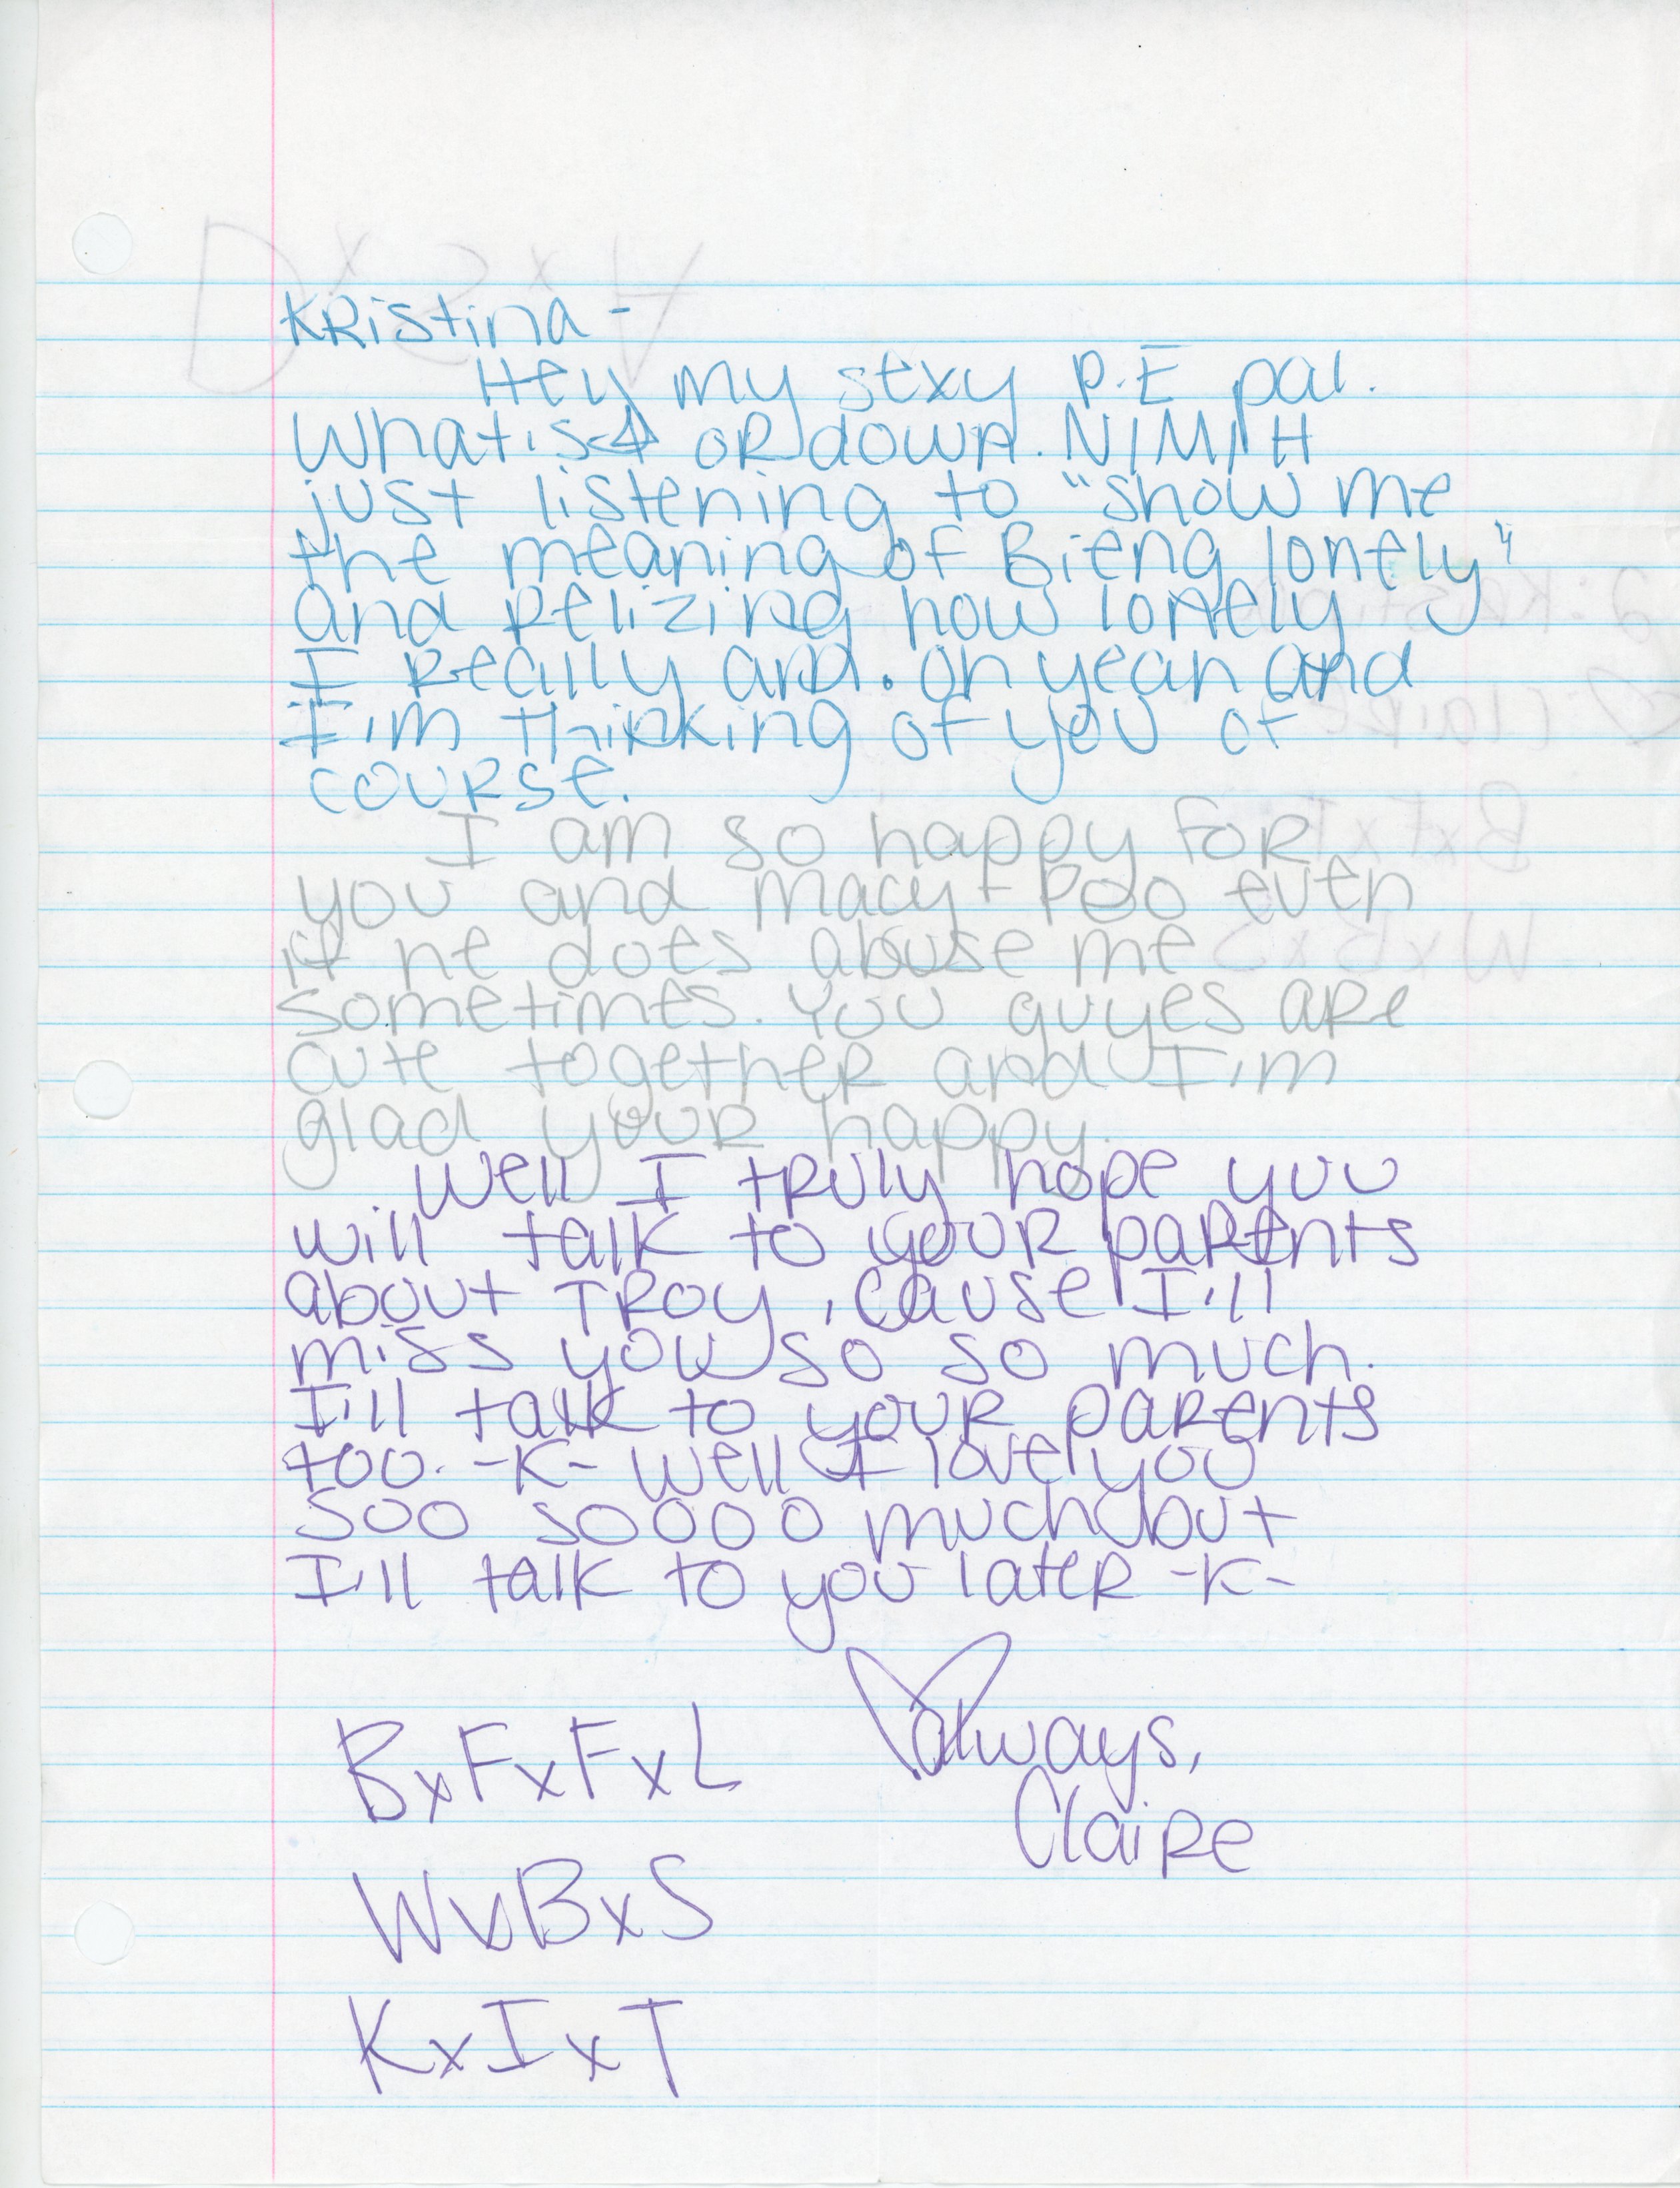 Kristina -
Hey my sexy P.E pal.
What is ↑ or down. N/M/H
just listening to "show me
the meaning of Bieng lonely"
and relizing how lonely
I really am. oh yeah and
I'm thinking of you of
course.
I am so happy for
you and macy-Poo even
if he does abuse me
sometimes. You guyes are
cute together and I'm
glad your happy.
Well I truly hope you
will talk to your parents
about Troy, cause I'll
miss you so so much.
I'll talk to your parents
too. -K- well I love you
soo soooo much but
I'll talk to you later -K-
always,
Claire
BxFxFxL
WxBxS
KxIxT